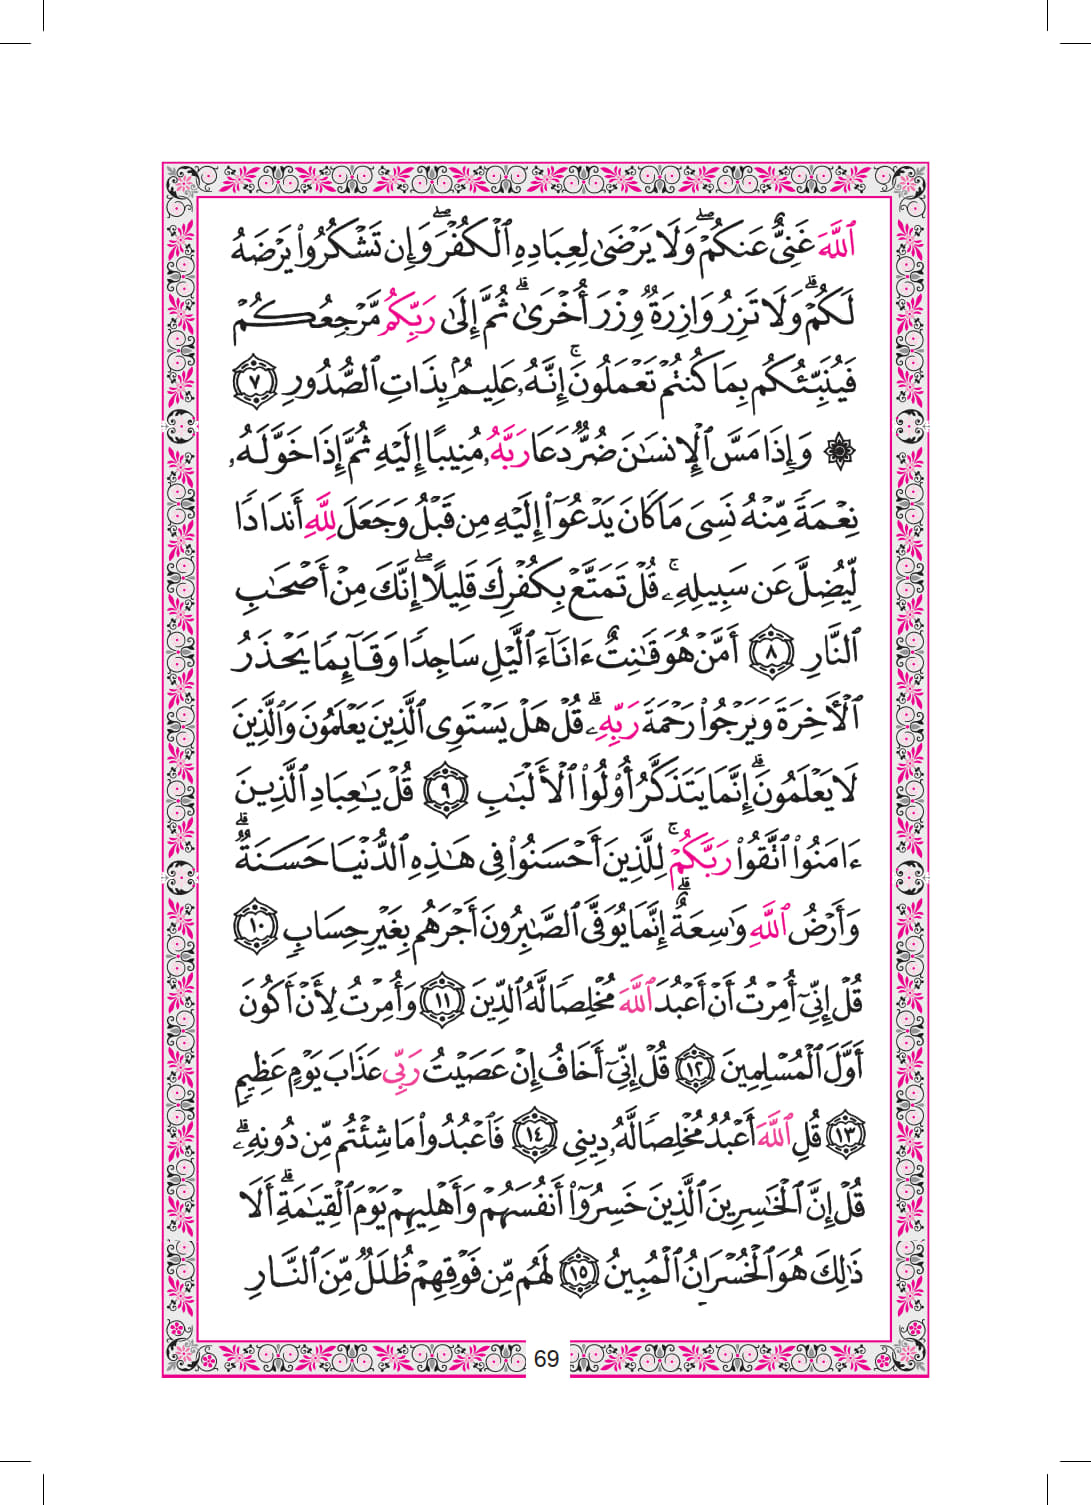 ٱللَّهَ غَنِيٌّ عَنكُمْ ۖ وَلَا يَرْضَىٰ لِعِبَادِهِ ٱلْكُفْرَ ۖ وَإِن تَشْكُرُوا۟ يَرْضَهُ
لَكُمْ ۗ وَلَا تَزِرُ وَازِرَةٌ وِزْرَ أُخْرَىٰ ۗ ثُمَّ إِلَىٰ رَبِّكُم مَّرْجِعُكُمْ
فَيُنَبِّئُكُم بِمَا كُنتُمْ تَعْمَلُونَ ۚ إِنَّهُۥ عَلِيمٌۢ بِذَاتِ ٱلصُّدُورِ ٧
۞ وَإِذَا مَسَّ ٱلْإِنسَـٰنَ ضُرٌّ دَعَا رَبَّهُۥ مُنِيبًا إِلَيْهِ ثُمَّ إِذَا خَوَّلَهُۥ
نِعْمَةً مِّنْهُ نَسِىَ مَا كَانَ يَدْعُوٓا۟ إِلَيْهِ مِن قَبْلُ وَجَعَلَ لِلَّهِ أَندَادًا
لِّيُضِلَّ عَن سَبِيلِهِۦ ۚ قُلْ تَمَتَّعْ بِكُفْرِكَ قَلِيلًا ۖ إِنَّكَ مِنْ أَصْحَـٰبِ
ٱلنَّارِ ٨ أَمَّنْ هُوَ قَـٰنِتٌ ءَانَآءَ ٱلَّيْلِ سَاجِدًا وَقَآئِمًا يَحْذَرُ
ٱلْـَٔاخِرَةَ وَيَرْجُوا۟ رَحْمَةَ رَبِّهِۦ ۗ قُلْ هَلْ يَسْتَوِى ٱلَّذِينَ يَعْلَمُونَ وَٱلَّذِينَ
لَا يَعْلَمُونَ ۗ إِنَّمَا يَتَذَكَّرُ أُو۟لُوا۟ ٱلْأَلْبَـٰبِ ٩ قُلْ يَـٰعِبَادِ ٱلَّذِينَ
ءَامَنُوا۟ ٱتَّقُوا۟ رَبَّكُمْ ۚ لِلَّذِينَ أَحْسَنُوا۟ فِى هَـٰذِهِ ٱلدُّنْيَا حَسَنَةٌ ۗ
وَأَرْضُ ٱللَّهِ وَٰسِعَةٌ ۗ إِنَّمَا يُوَفَّى ٱلصَّـٰبِرُونَ أَجْرَهُم بِغَيْرِ حِسَابٍ ١٠
قُلْ إِنِّىٓ أُمِرْتُ أَنْ أَعْبُدَ ٱللَّهَ مُخْلِصًا لَّهُ ٱلدِّينَ ١١ وَأُمِرْتُ لِأَنْ أَكُونَ
أَوَّلَ ٱلْمُسْلِمِينَ ١٢ قُلْ إِنِّىٓ أَخَافُ إِنْ عَصَيْتُ رَبِّى عَذَابَ يَوْمٍ عَظِيمٍ
١٣ قُلِ ٱللَّهَ أَعْبُدُ مُخْلِصًا لَّهُۥ دِينِى ١٤ فَٱعْبُدُوا۟ مَا شِئْتُم مِّن دُونِهِۦ ۗ
قُلْ إِنَّ ٱلْخَـٰسِرِينَ ٱلَّذِينَ خَسِرُوٓا۟ أَنفُسَهُمْ وَأَهْلِيهِمْ يَوْمَ ٱلْقِيَـٰمَةِ ۗ أَلَا
ذَٰلِكَ هُوَ ٱلْخُسْرَانُ ٱلْمُبِينُ ١٥ لَهُم مِّن فَوْقِهِمْ ظُلَلٌ مِّنَ ٱلنَّارِ
69